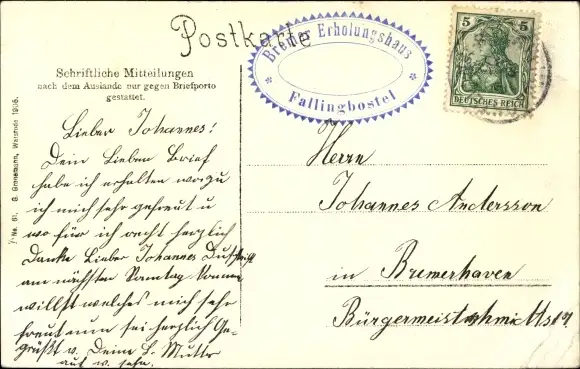 Postkarte
Bremer Erholungshaus
Fallingbostel
5 5
DEUTSCHES REICH
Schriftliche Mitteilungen
nach dem Auslande nur gegen Briefporto
gestattet.
Lieber Johannes!
Dein Lieben Brief
habe ich erhalten worzu
ich mich sehr gefreut u
wo für ich recht herzlich
Danke Lieber Johannes Du
am nächsten Sonntag
willst welches mich sehr
freut nun sei herzlich Ge-
grüßt v. Deine L. Mutter
auf w. sehn.
Herrn
Johannes Andersson
in Bremerhaven
No. 61. Walsrode 1905.